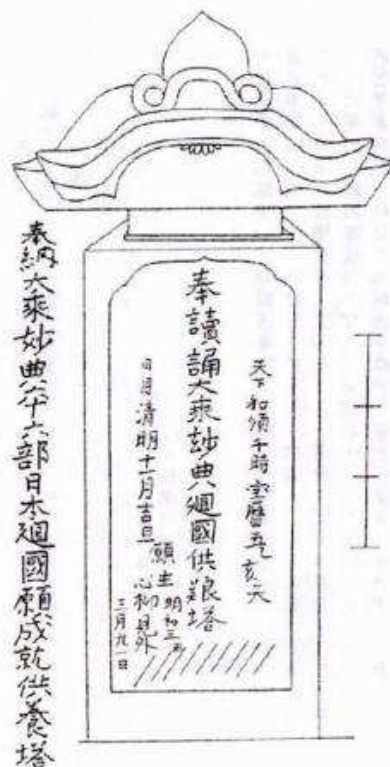 天下和順于時宝暦五乙亥天
奉讀誦大乗妙典廻國供粮塔
日月清明十一月吉旦
願主
明和三丙
心柳見外
三月九一日
奉納大乗妙典六十六部日本廻國願成就供養塔